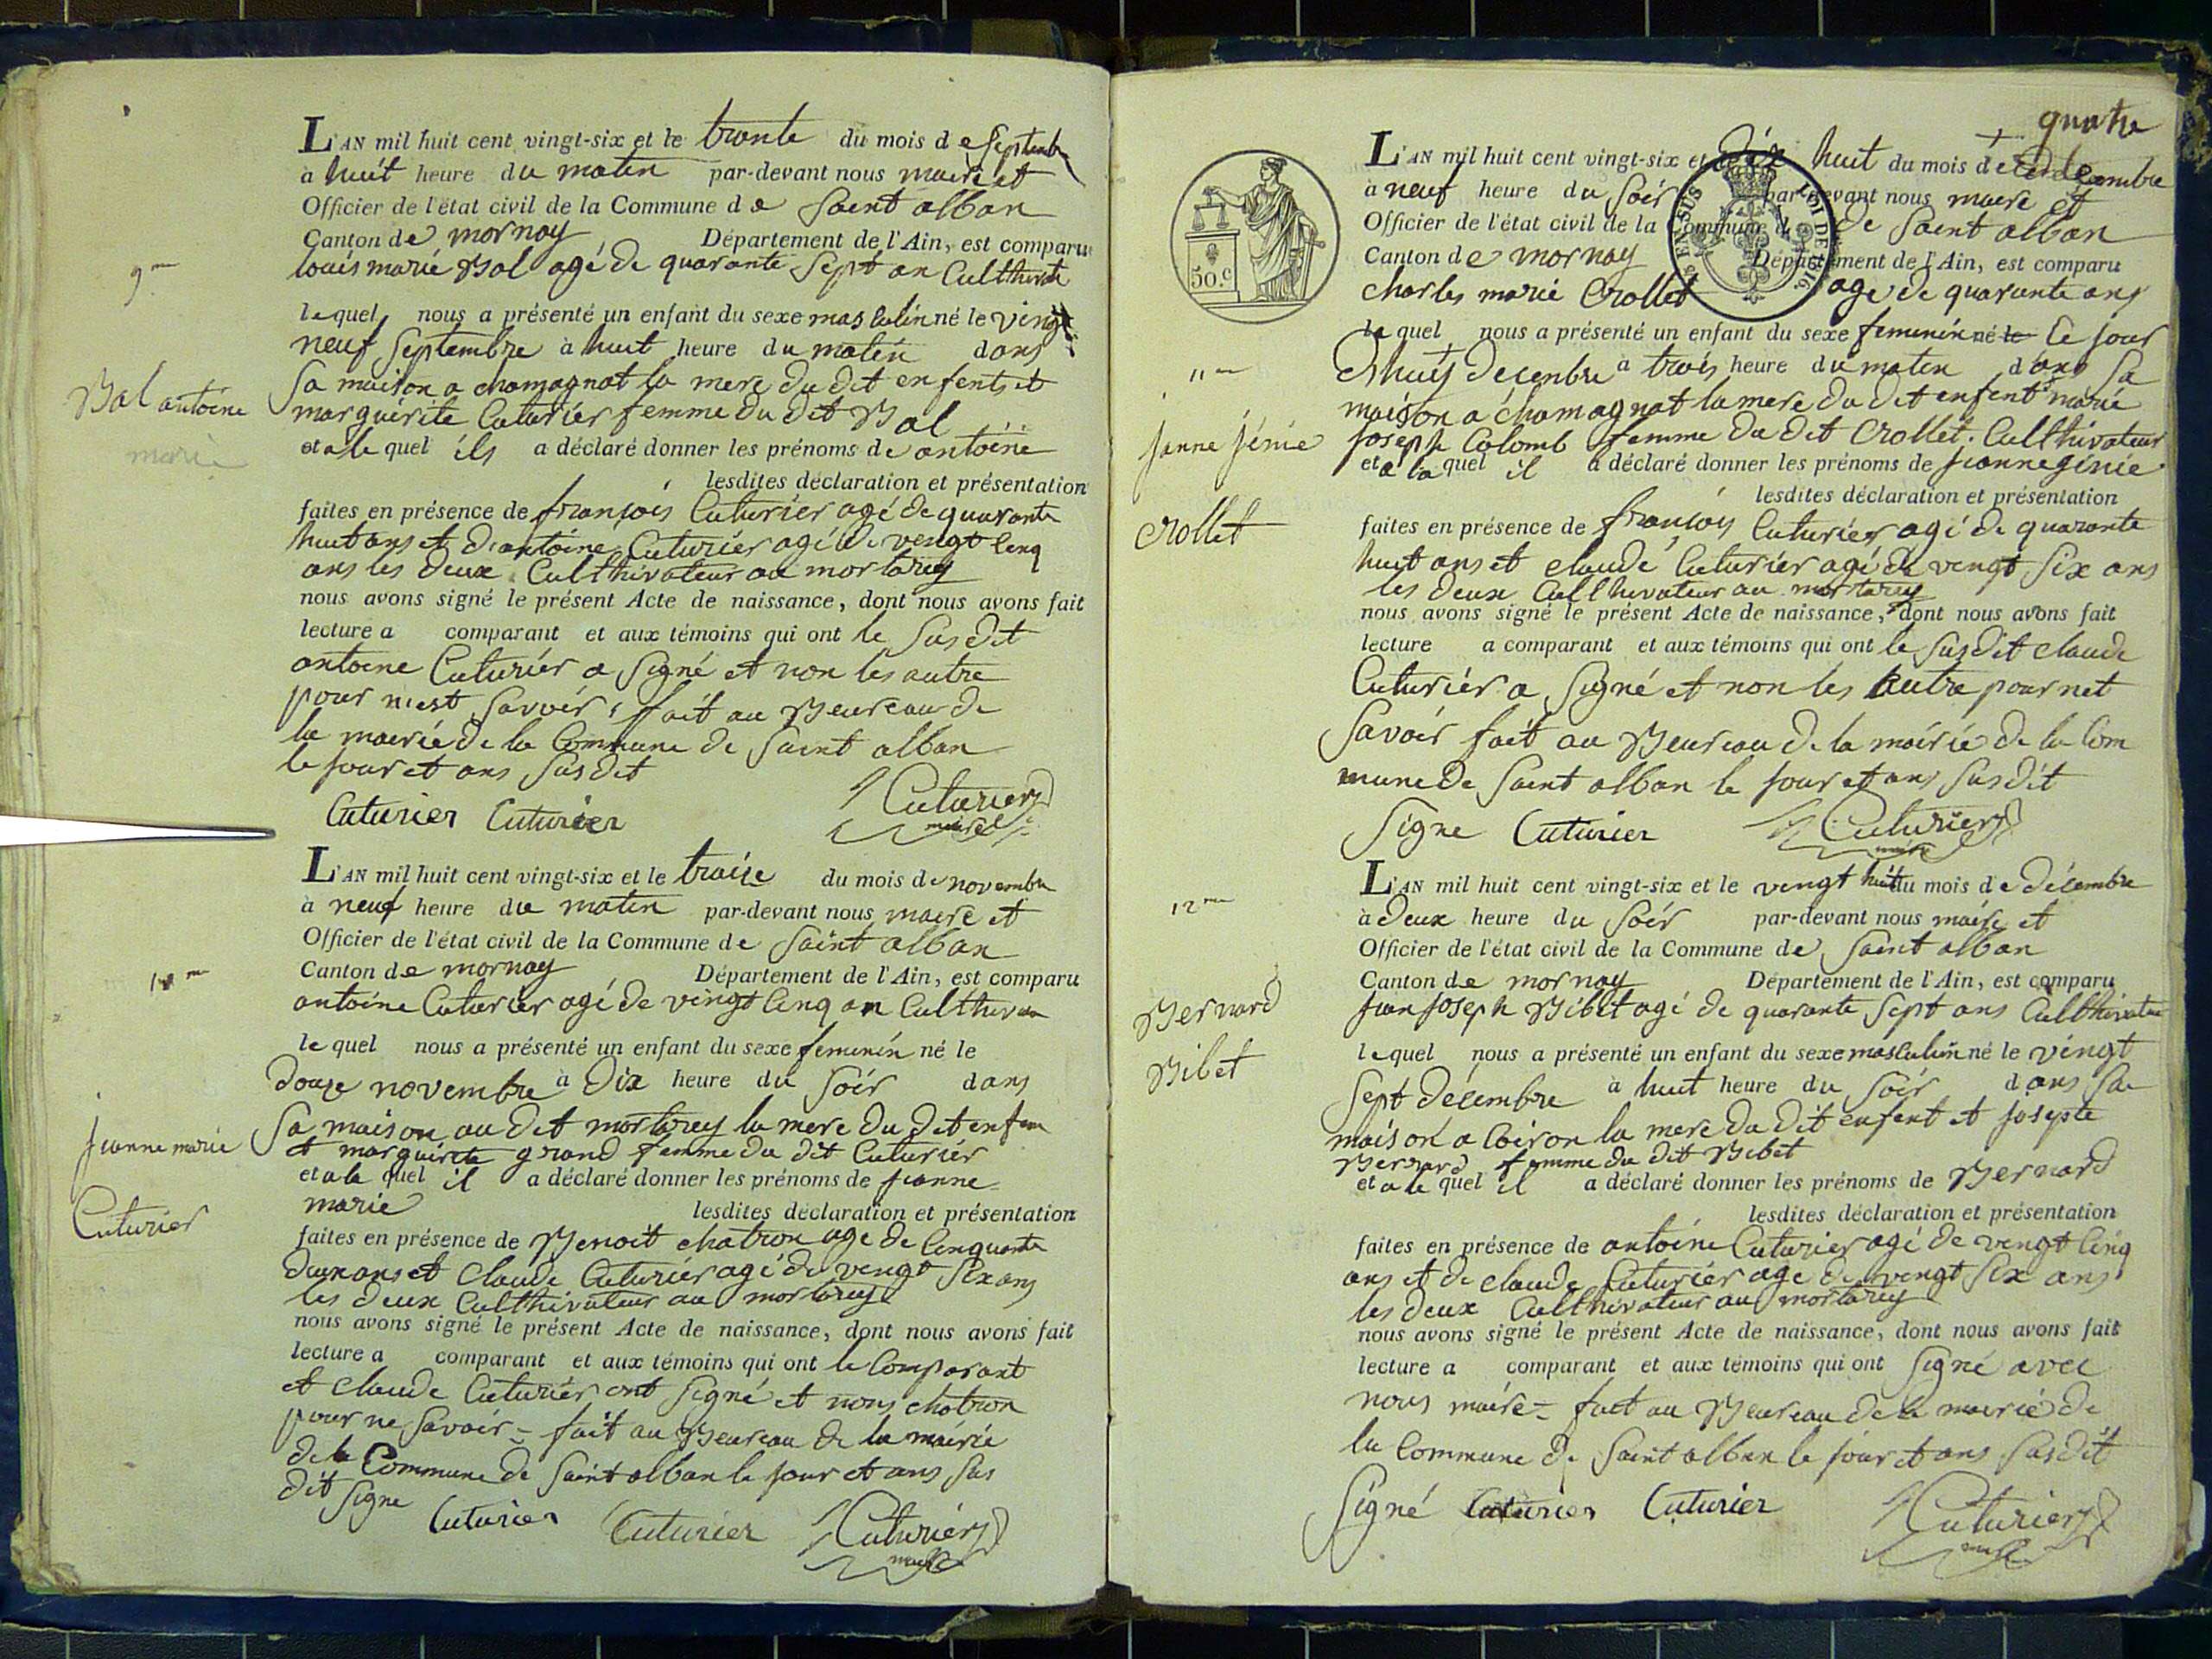 L'AN mil huit cent vingt-six et le trante du mois de Septembre
a huit heure du matin par-devant nous maire et
Officier de l'état civil de la Commune de Saint alban
Canton de mornay Département de l'Ain, est comparu
9me
louis marie Bal agé de quarante Sept an Cultthivate
le quel nous a présenté un enfant du sexe masculin né le vingt
neuf Septembre à huit heure du matin dans
Bal antoine
marie
Sa maison a chamagnat la mere du dit enfent et
marguerite Cuturier femme du dit Bal
et a le quel ils a déclaré donner les prénoms de antoine
lesdites déclaration et présentation
faites en présence de françois Cuturier agé de quarante
huit ans et d'antoine Cuturier agé de vengt cenq
ans les deux Cultthivateur au mortarey
nous avons signé le présent Acte de naissance, dont nous avons fait
lecture a comparant et aux témoins qui ont le Sus dit
antoine Cuturier a Signé et non les autre
pour n'est Savoir, fait au Beureau de
la mairie de la Commune de Saint alban
le jour et ans Sus dit
Cuturier Cuturier Cuturier
maire
L'AN mil huit cent vingt-six et le traize du mois de novembre
à neuf heure du matin par-devant nous maire et
Officier de l'état civil de la Commune de Saint alban
Canton de mornay Département de l'Ain, est comparu
10me
antoine Cuturier agé de vingt Cenq an Cultthivan
le quel nous a présenté un enfant du sexe femenin né le
douze novembre à dix heure du Soir dans
Jeanne marie
Cuturier
Sa maison au dit mortarey la mere du dit enfan
et marguirete grand femme du dit Cuturier
et a le quel il a déclaré donner les prénoms de jeanne
marie lesdites déclaration et présentation
faites en présence de Benoit chatron age de Cenquante
deux ans et Claude Cuturier agé de vengt Six ans
les deux Cultthivateur au mortarey
nous avons signé le présent Acte de naissance, dont nous avons fait
lecture a comparant et aux témoins qui ont le Comparant
et claude Cuturier ont Signé et nons chatron
pour ne Savoir = fait au Beureau de la mairie
de la Commune de Saint alban le jour et ans Sus
dit Signe Cuturier Cuturier Cuturier
maire
quatre
50.c
EN SUS
L'AN mil huit cent vingt-six et le dix huit du mois de decembre
à neuf heure du Soir par-devant nous maire et
Officier de l'état civil de la Commune de de Saint alban
Canton de mornay Département de l'Ain, est comparu
charles marie Crollet age de quarante ans
le quel nous a présenté un enfant du sexe femenin né le Ce jour
11me
d'huy decenbre a trois heure du matin dans Sa
maison a chamagnat la mere du dit enfent marie
Janne Jénie
Crollet
joseph Colomb femme du dit Crollet. Cultthivateur
et a la quel il a déclaré donner les prénoms de jeanne génie
lesdites déclaration et présentation
faites en présence de françois Cuturier agé de quarante
huit ans et claude Cuturier agé de vengt Six ans
les deux Cultthivateur au mortarey
nous avons signé le présent Acte de naissance, dont nous avons fait
lecture a comparant et aux témoins qui ont le Susdit claude
Cuturier a Signé et non les autre pour net
Savoir fait au Beureau de la mairie de la Com
mune de Saint alban le jour et ans Sus dit
Signe Cuturier Cuturier
maire
L'AN mil huit cent vingt-six et le vengt huit du mois de décembre
12me
à deux heure du Soir par-devant nous maire et
Officier de l'état civil de la Commune de Saint alban
Canton de mornay Département de l'Ain, est comparu
Bernard
Bibet
jean joseph Bibet agé de quarante Sept ans Cultthivateur
le quel nous a présenté un enfant du sexe masculin né le vingt
Sept décembre à huit heure du Soir dans Sa
maison a Coiron la mere du dit enfent et josepte
Bernard femme du dit Bibet
et a le quel il a déclaré donner les prénoms de Bernard
lesdites déclaration et présentation
faites en présence de antoine Cuturier agé de vengt Cenq
ans et de claude Cuturier age de vengt Six ans
les deux Cultthivateur au mortarey
nous avons signé le présent Acte de naissance, dont nous avons fait
lecture a comparant et aux témoins qui ont Signé avec
nous maire = fait au Beureau de la mairie de
la Commune de Saint alban le jour et ans Sus dit
Signé Cuturier Cuturier Cuturier
maire